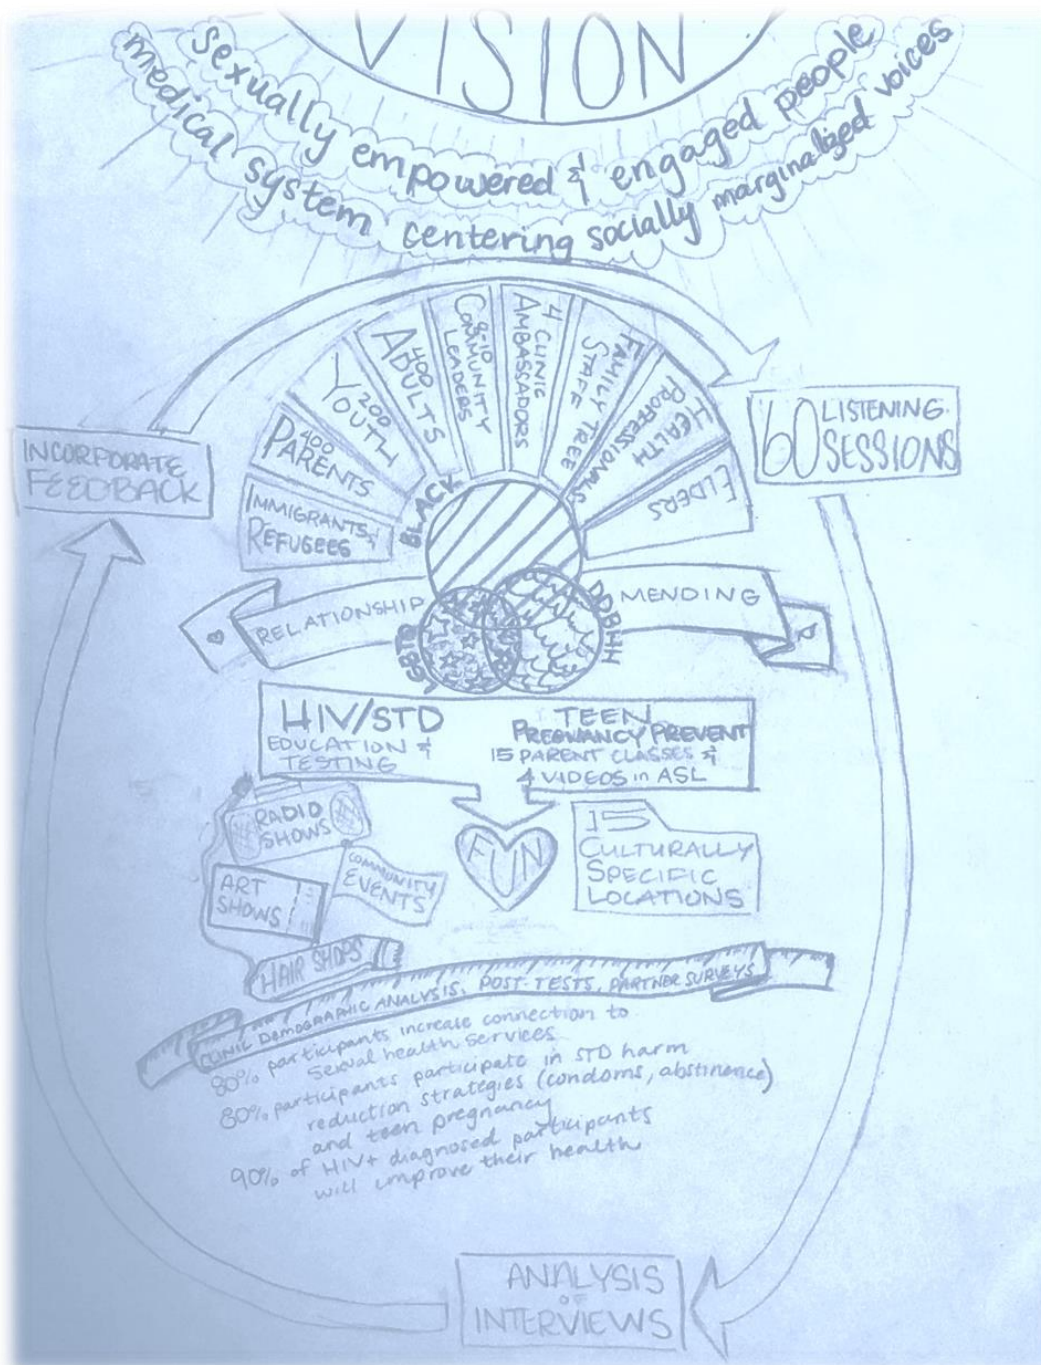 VISION
sexually empowered & engaged people
medical system centering socially marginalized voices
INCORPORATE
FEEDBACK
60 LISTENING
SESSIONS
IMMIGRANTS &
REFUGEES
400
PARENTS
200
YOUTH
400
ADULTS
8-10
COMMUNITY
LEADERS
4 CLINIC
AMBASSADORS
FAMILY TREE
STAFF
HEALTH
PROFESSIONALS
ELDERS
BLACK
LGBTQ
DDBHH
RELATIONSHIP
MENDING
HIV/STD
EDUCATION &
TESTING
TEEN
PREGNANCY PREVENT
15 PARENT CLASSES &
4 VIDEOS in ASL
RADIO
SHOWS
COMMUNITY
EVENTS
ART
SHOWS
HAIR SHOPS
FUN
15
CULTURALLY
SPECIFIC
LOCATIONS
CLINIC DEMOGRAPHIC ANALYSIS, POST-TESTS, PARTNER SURVEYS
80% participants increase connection to
sexual health services
80% participants participate in STD harm
reduction strategies (condoms, abstinence)
and teen pregnancy
90% of HIV+ diagnosed participants
will improve their health
ANALYSIS
OF
INTERVIEWS